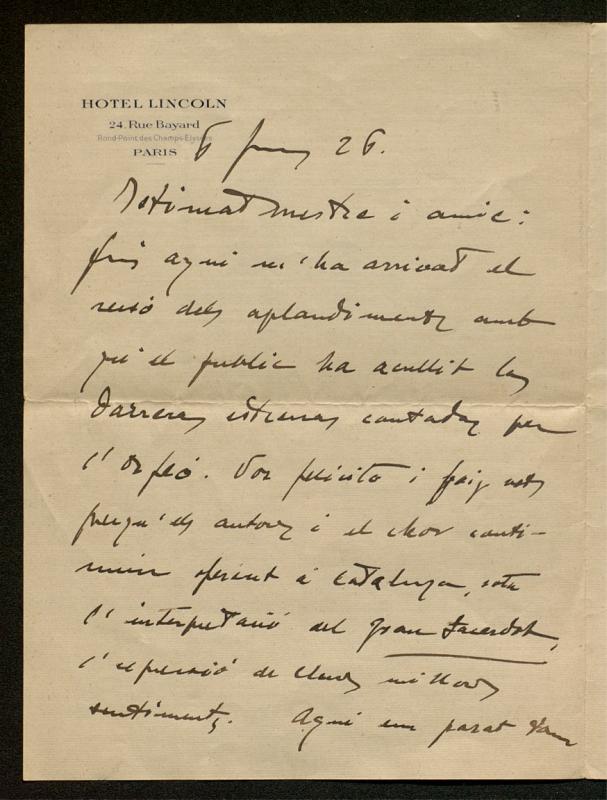 HOTEL LINCOLN
24. Rue Bayard
Rond-Point des Champs-Elysées
PARIS
6 juny 26.
Estimat mestre i amic:
fins aqui m'ha arrivat el
ressó dels aplaudiments amb
qu'el public ha acullit las
darreras estrenas cantadas per
l'Orfeó. Vos felicito i faig vots
perqu'els autors i el chor conti-
nuin oferint a Catalunya, sota
l'interpretació del gran Sacerdot,
l'expressió de llurs millors
sentiments. Aqui em parat